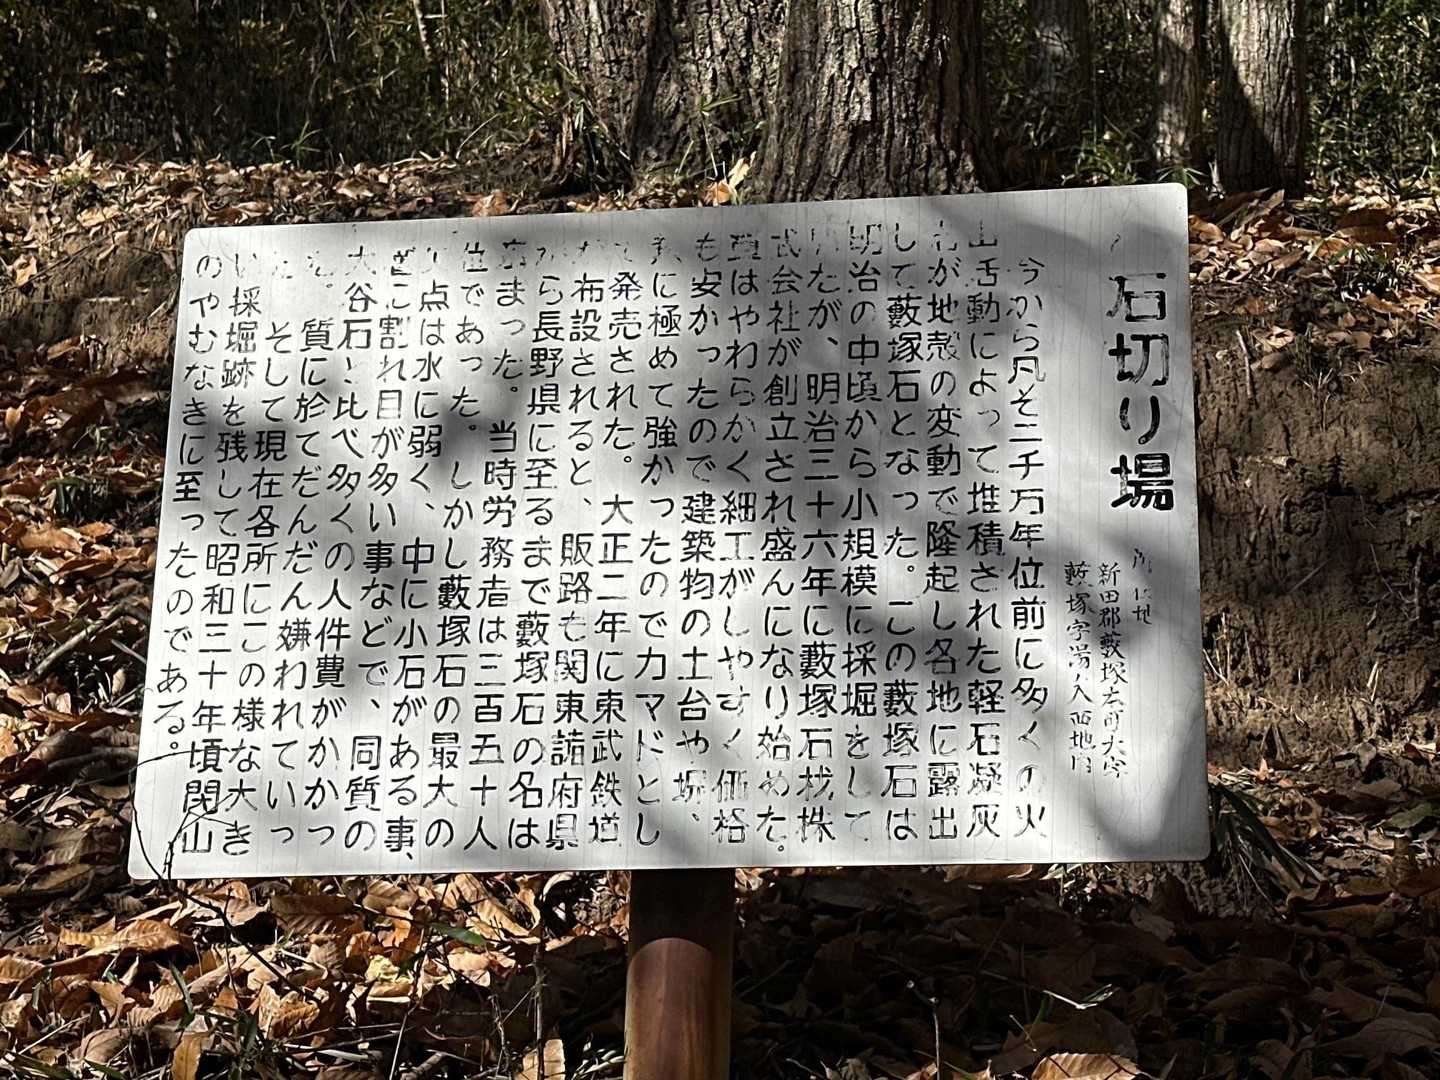 石切り場
所在地
新田郡藪塚本町大字
藪塚字湯ノ入西地内
今から凡そ二千万年位前に多くの火
山活動によって堆積された軽石凝灰
岩が地殻の変動で隆起し各地に露出
して藪塚石となった。この藪塚石は
明治の中頃から小規模に採堀をして
いたが、明治三十六年に藪塚石材株
式会社が創立され盛んになり始めた。
質はやわらかく細工がしやすく価格
も安かったので建築物の土台や塀、
に極めて強かったのでカマドとし
て発売された。大正二年に東武鉄道
が布設されると、販路も関東諸府県
から長野県に至るまで藪塚石の名は
まった。当時労務者は三百五十人
位であった。しかし藪塚石の最大の
点は水に弱く、中に小石がある事、
に割れ目が多い事などで、同質の
大谷石と比べ多くの人件費がかかっ
た。質に於てだんだん嫌われていっ
た。そして現在各所にこの様な大き
い採堀跡を残して昭和三十年頃閉山
のやむなきに至ったのである。